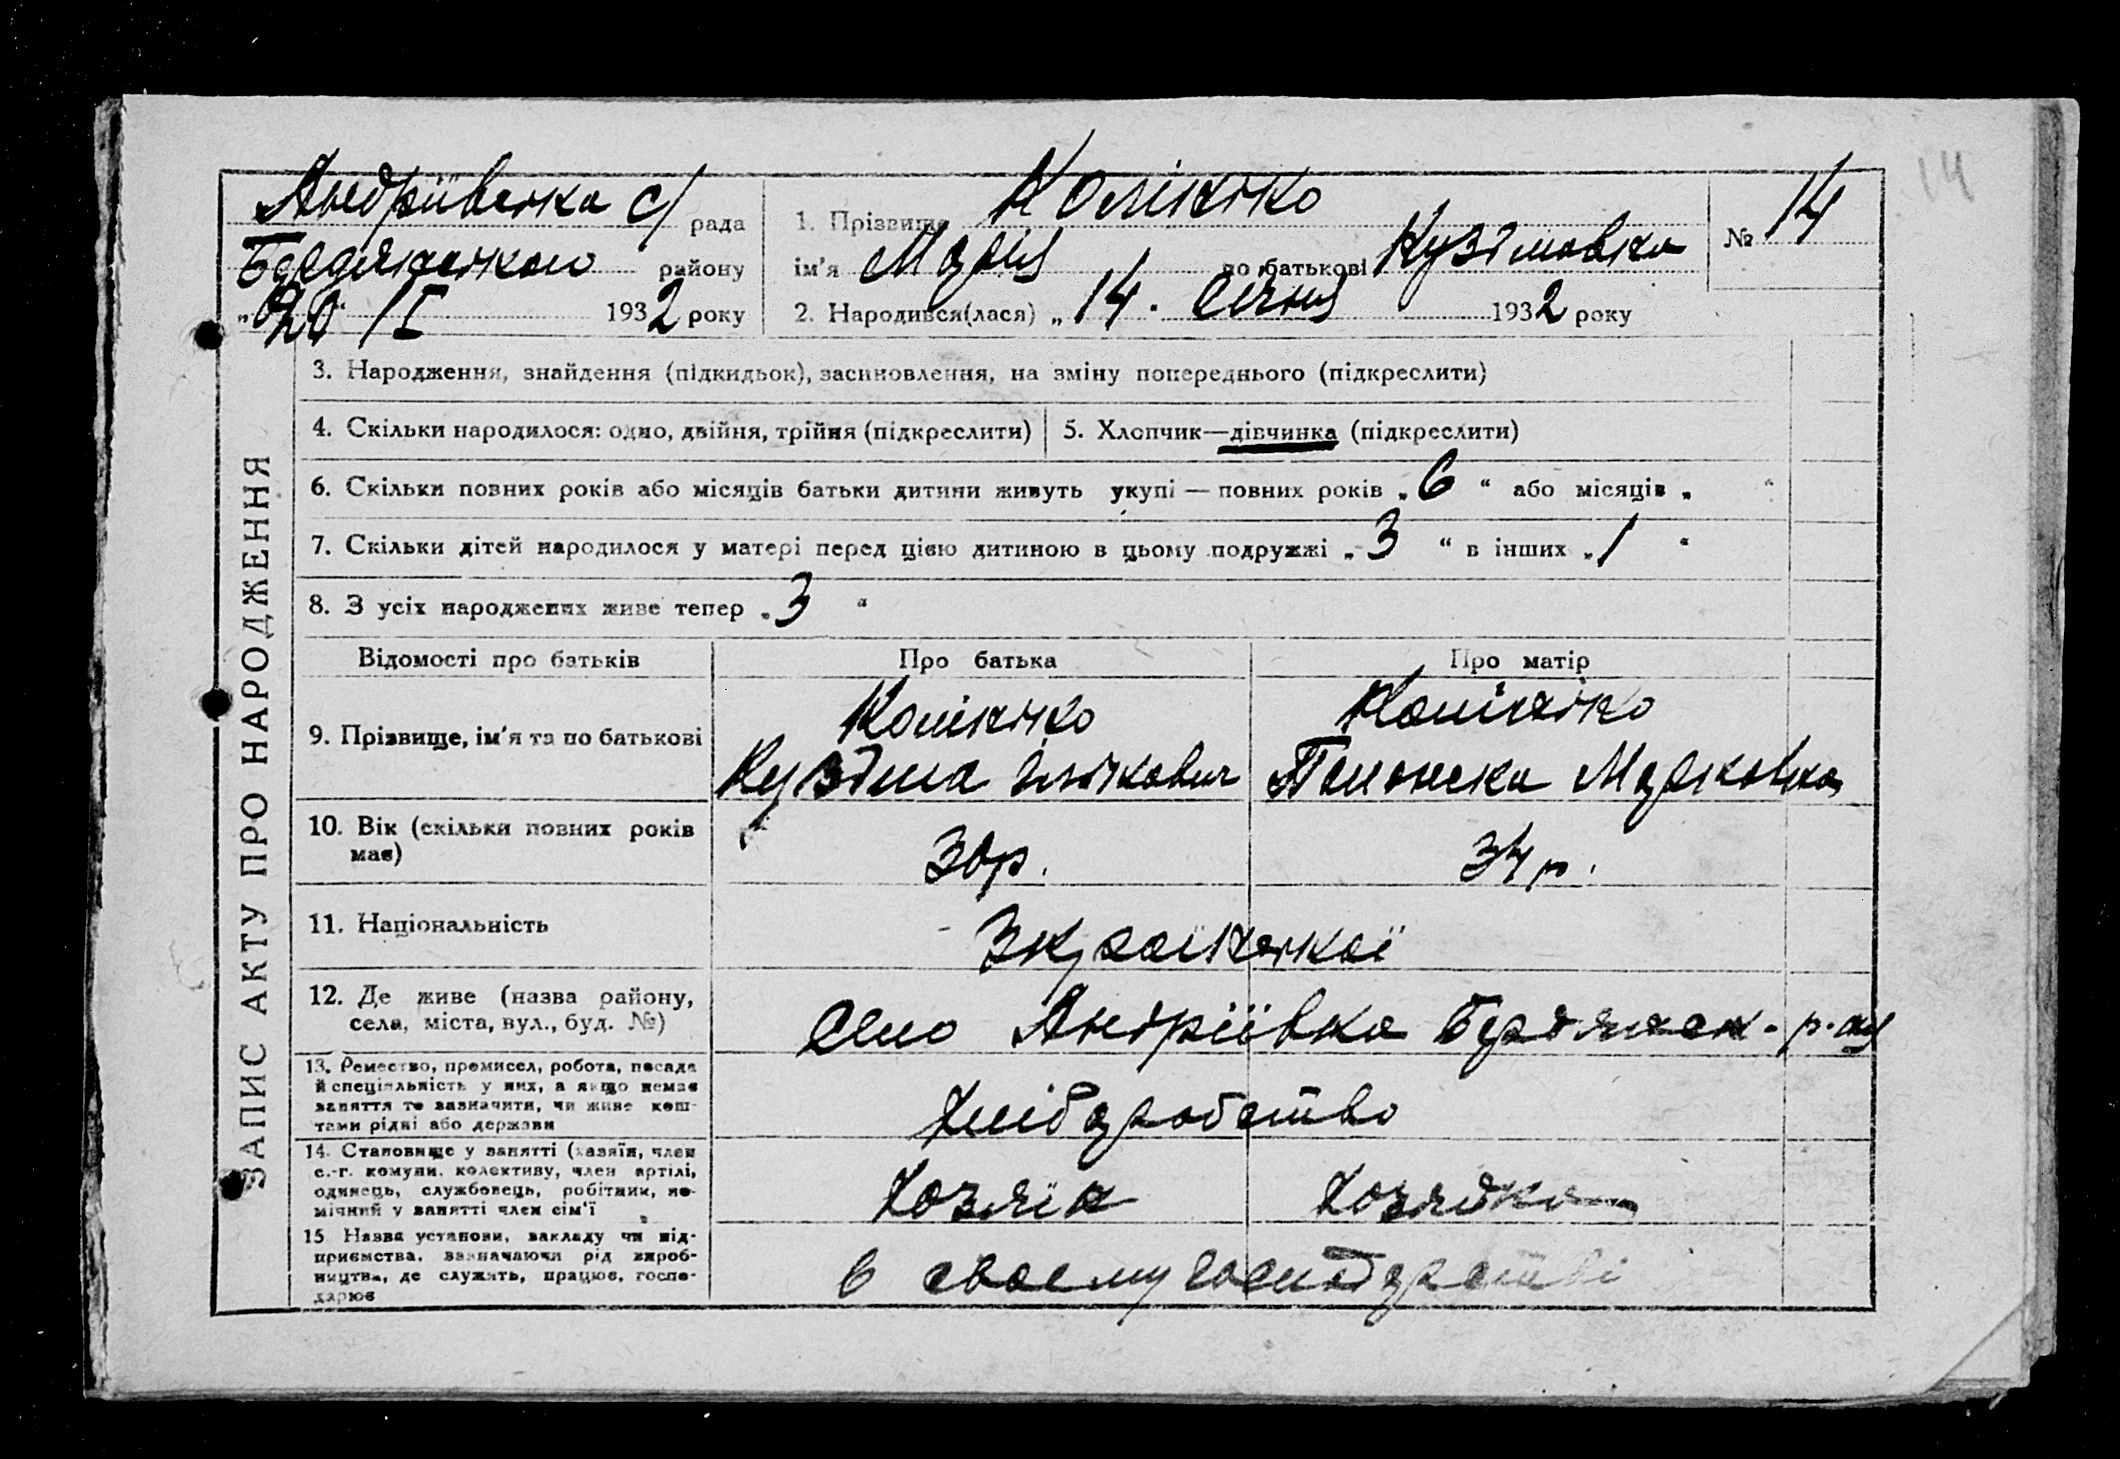 14
Андріївська с/ рада
Бердянського району
„20“ /I 1932 року
1. Прізвище Колінько
ім'я Марія по батькові Кузьмовна
2. Народився(лася) „14. Січня 1932 року
№ 14
ЗАПИС АКТУ ПРО НАРОДЖЕННЯ
3. Народження, знайдення (підкидьок), засиновлення, на зміну попереднього (підкреслити)
4. Скільки народилося: одно, двійня, трійня (підкреслити)
5. Хлопчик—дівчинка (підкреслити)
6. Скільки повних років або місяців батьки дитини живуть укупі — повних років „6“ або місяців „ “
7. Скільки дітей народилося у матері перед цією дитиною в цьому подружжі „3“ в інших „1“
8. З усіх народжених живе тепер „3“
Відомості про батьків Про батька Про матір
9. Прізвище, ім'я та по батькові
Колінько Колінько
Кузьма Палажка Марковна
10. Вік (скільки повних років
має)
30 р. 34 р.
11. Національність
Української
12. Де живе (назва району,
села, міста, вул., буд. №)
Село Андріївка Бердянськ. р-ну
13. Ремество, промисел, робота, посада
й спеціяльність у них, а якщо немає
заняття то зазначити, чи живе кош-
тами рідні або держави
Хліборобство
14. Становище у занятті (хазяїн, член
с.-г. комуни, колективу, член артілі,
одинець, службовець, робітник, по-
мічний у занятті член сім'ї
Хозяїн Хозяйка
15 Назва установи, закладу чи під-
приємства, зазначаючи рід вироб-
ництва, де служить, працює, госпо-
дарює
в своєму господарстві